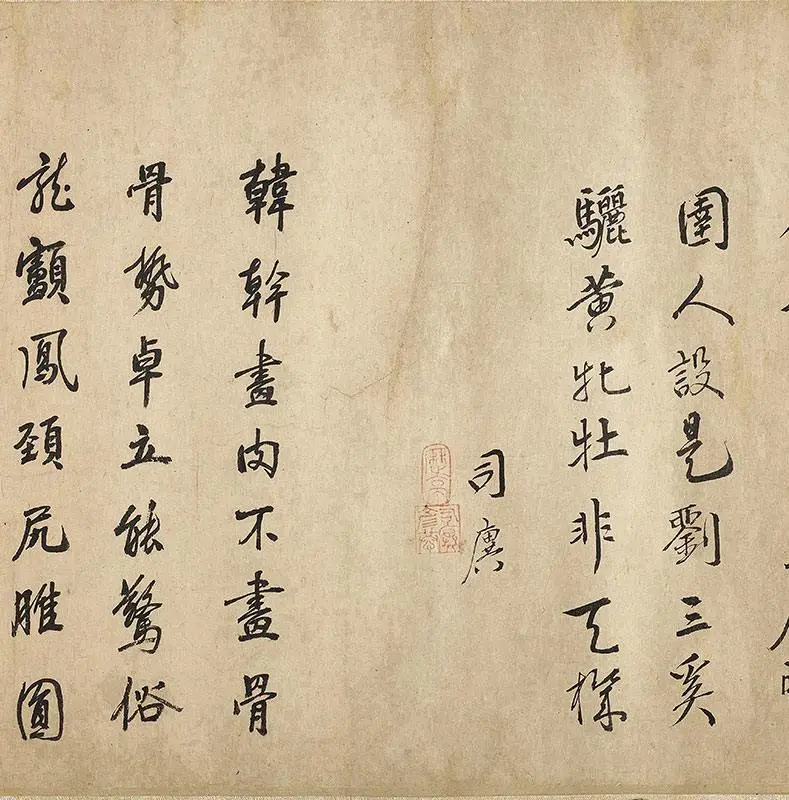 圉人設是劉三奚
驪黄牝牡非天機
司
韓幹畫肉不畫骨
骨勢卓立能驚俗
龍顱鳳頸尻脽圓